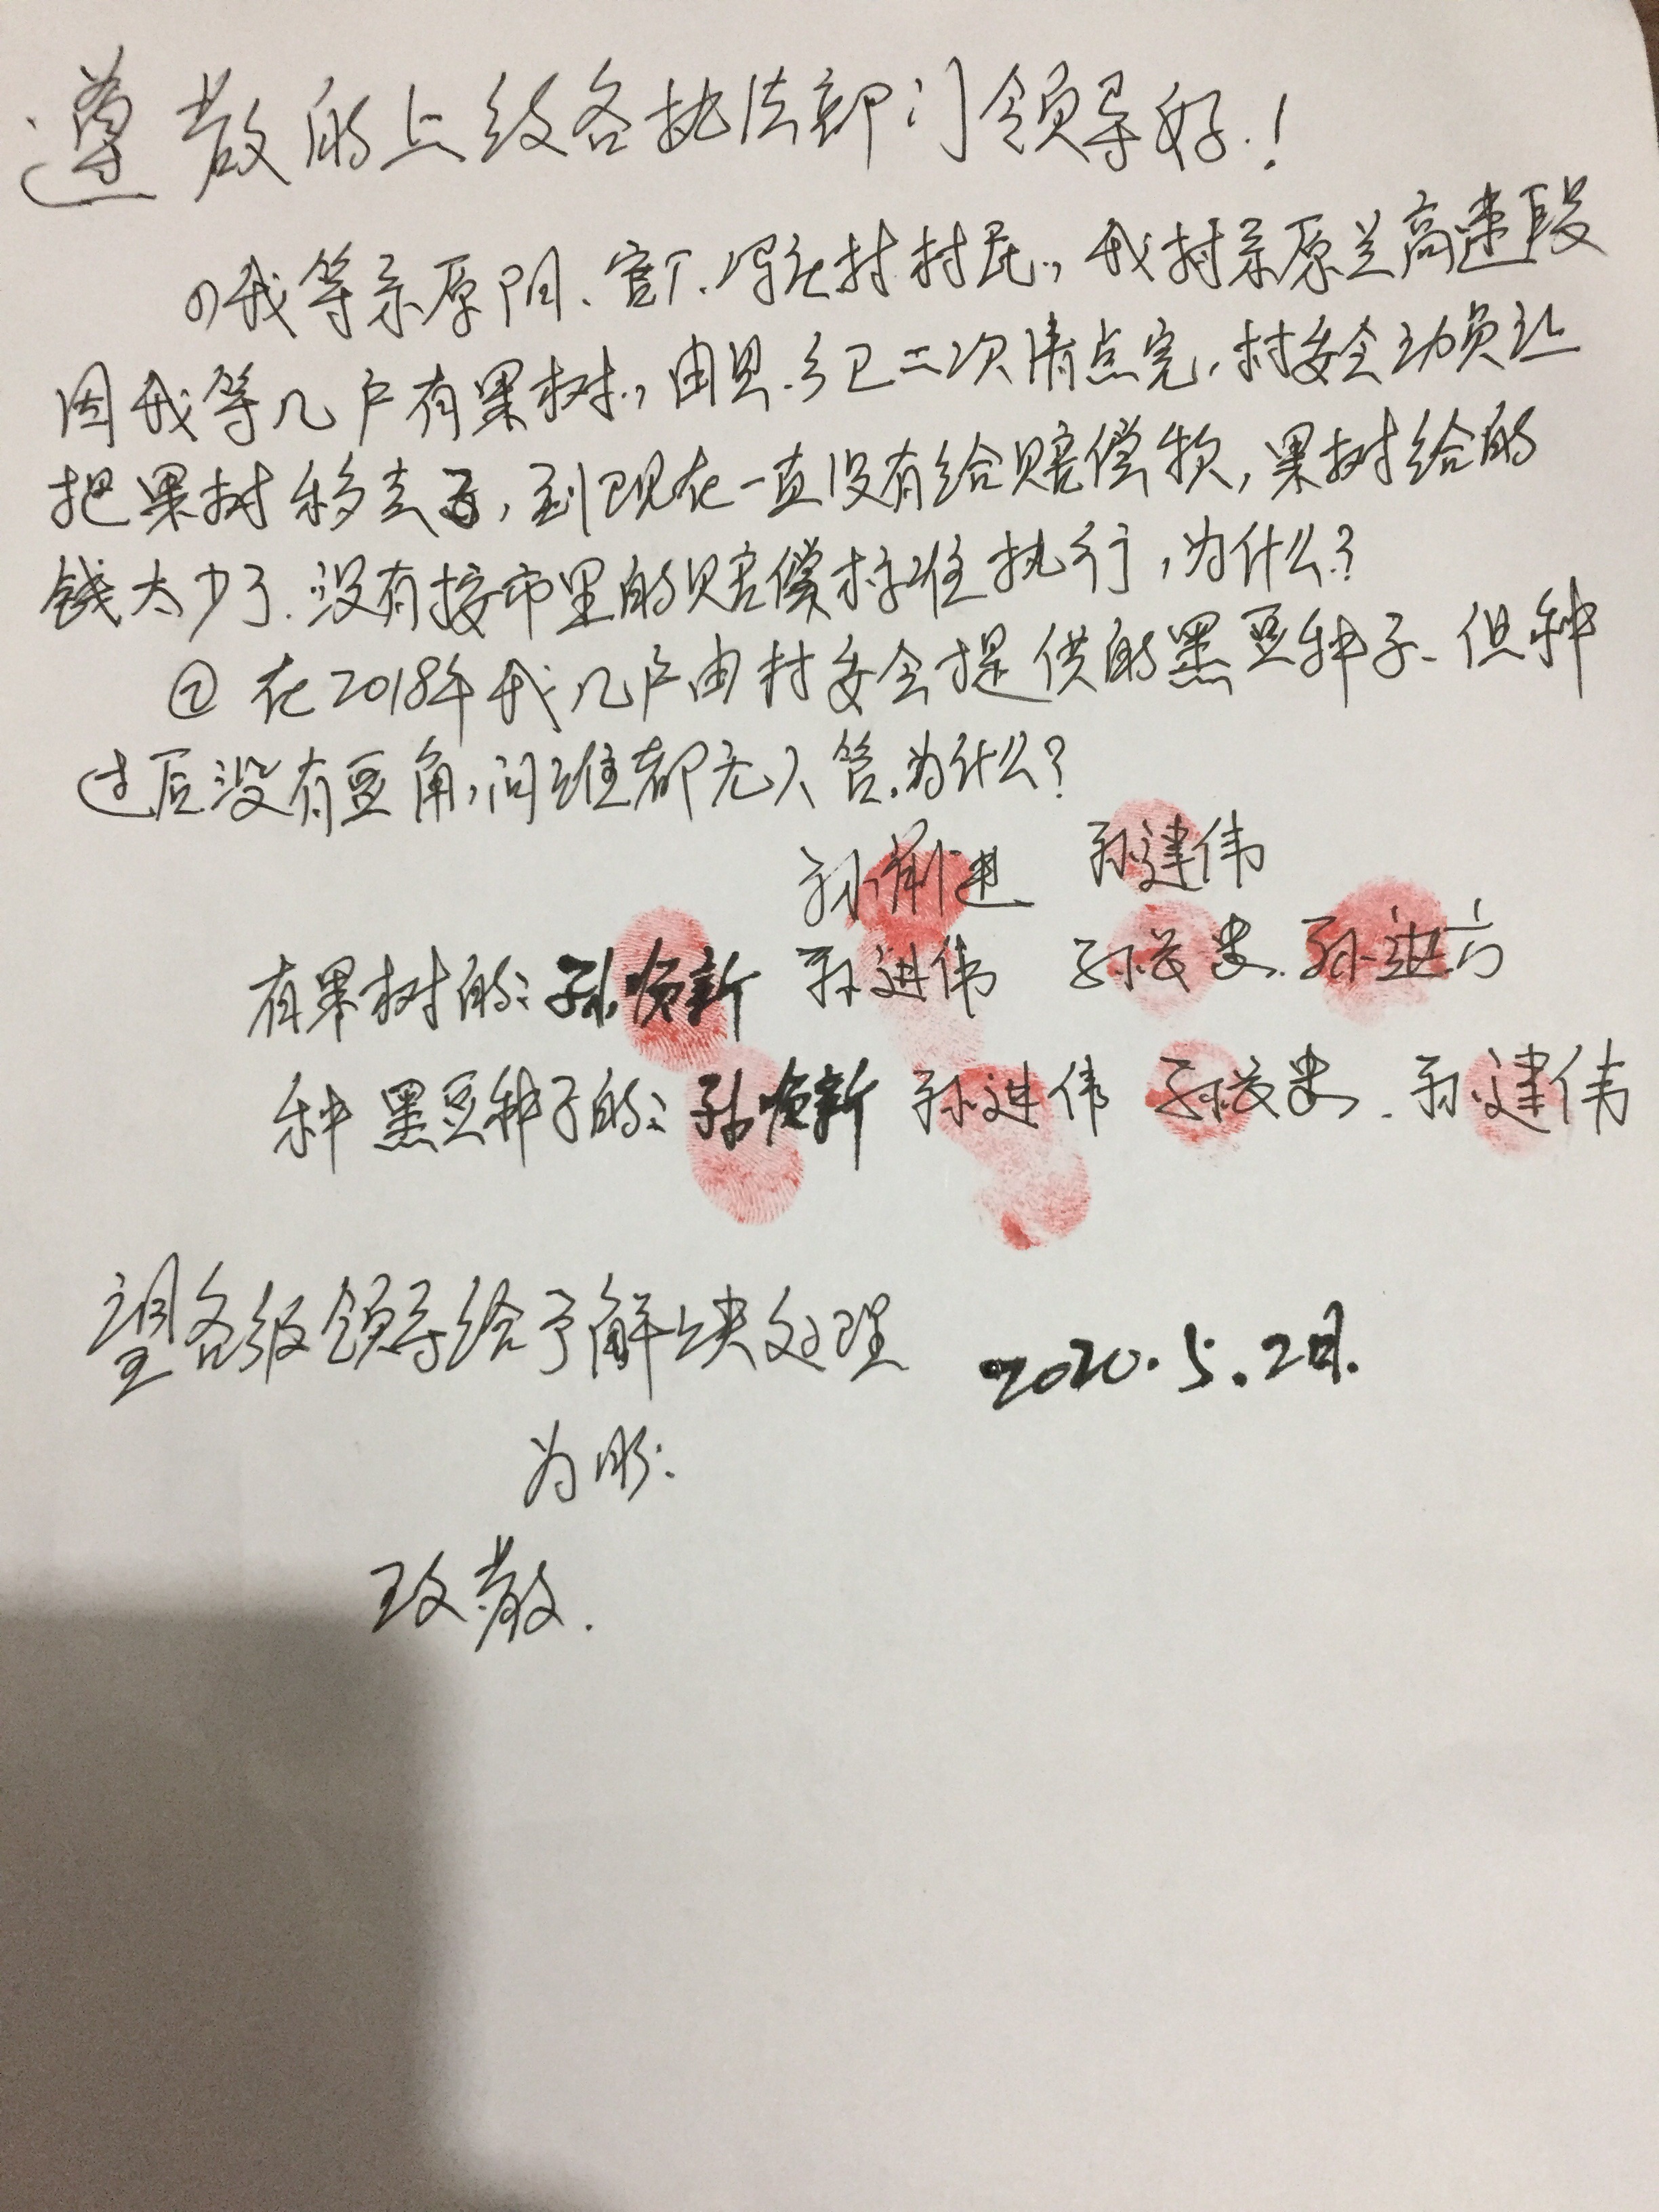 遵敬的上级各执法部门领导好!
①我等系原阳、官厂、马庄村村民,我村系原兰高速段
因我等几户有果树,由县.乡已二次清点完,村委会动员让
把果树移走了,到现在一直没有给赔偿款,果树给的
钱太少了.没有按市里的赔偿标准执行,为什么?
②在2018年我几户由村委会提供的黑豆种子.但种
过后没有豆角,问谁都无人管.为什么?
孙前进 孙建伟
有果树的:孙焕新 孙进伟 孙 孙进方
种黑豆种子的:孙焕新 孙进伟 孙 . 孙建伟
望各级领导给予解决处理 2020.5.2日.
为盼:
致敬.